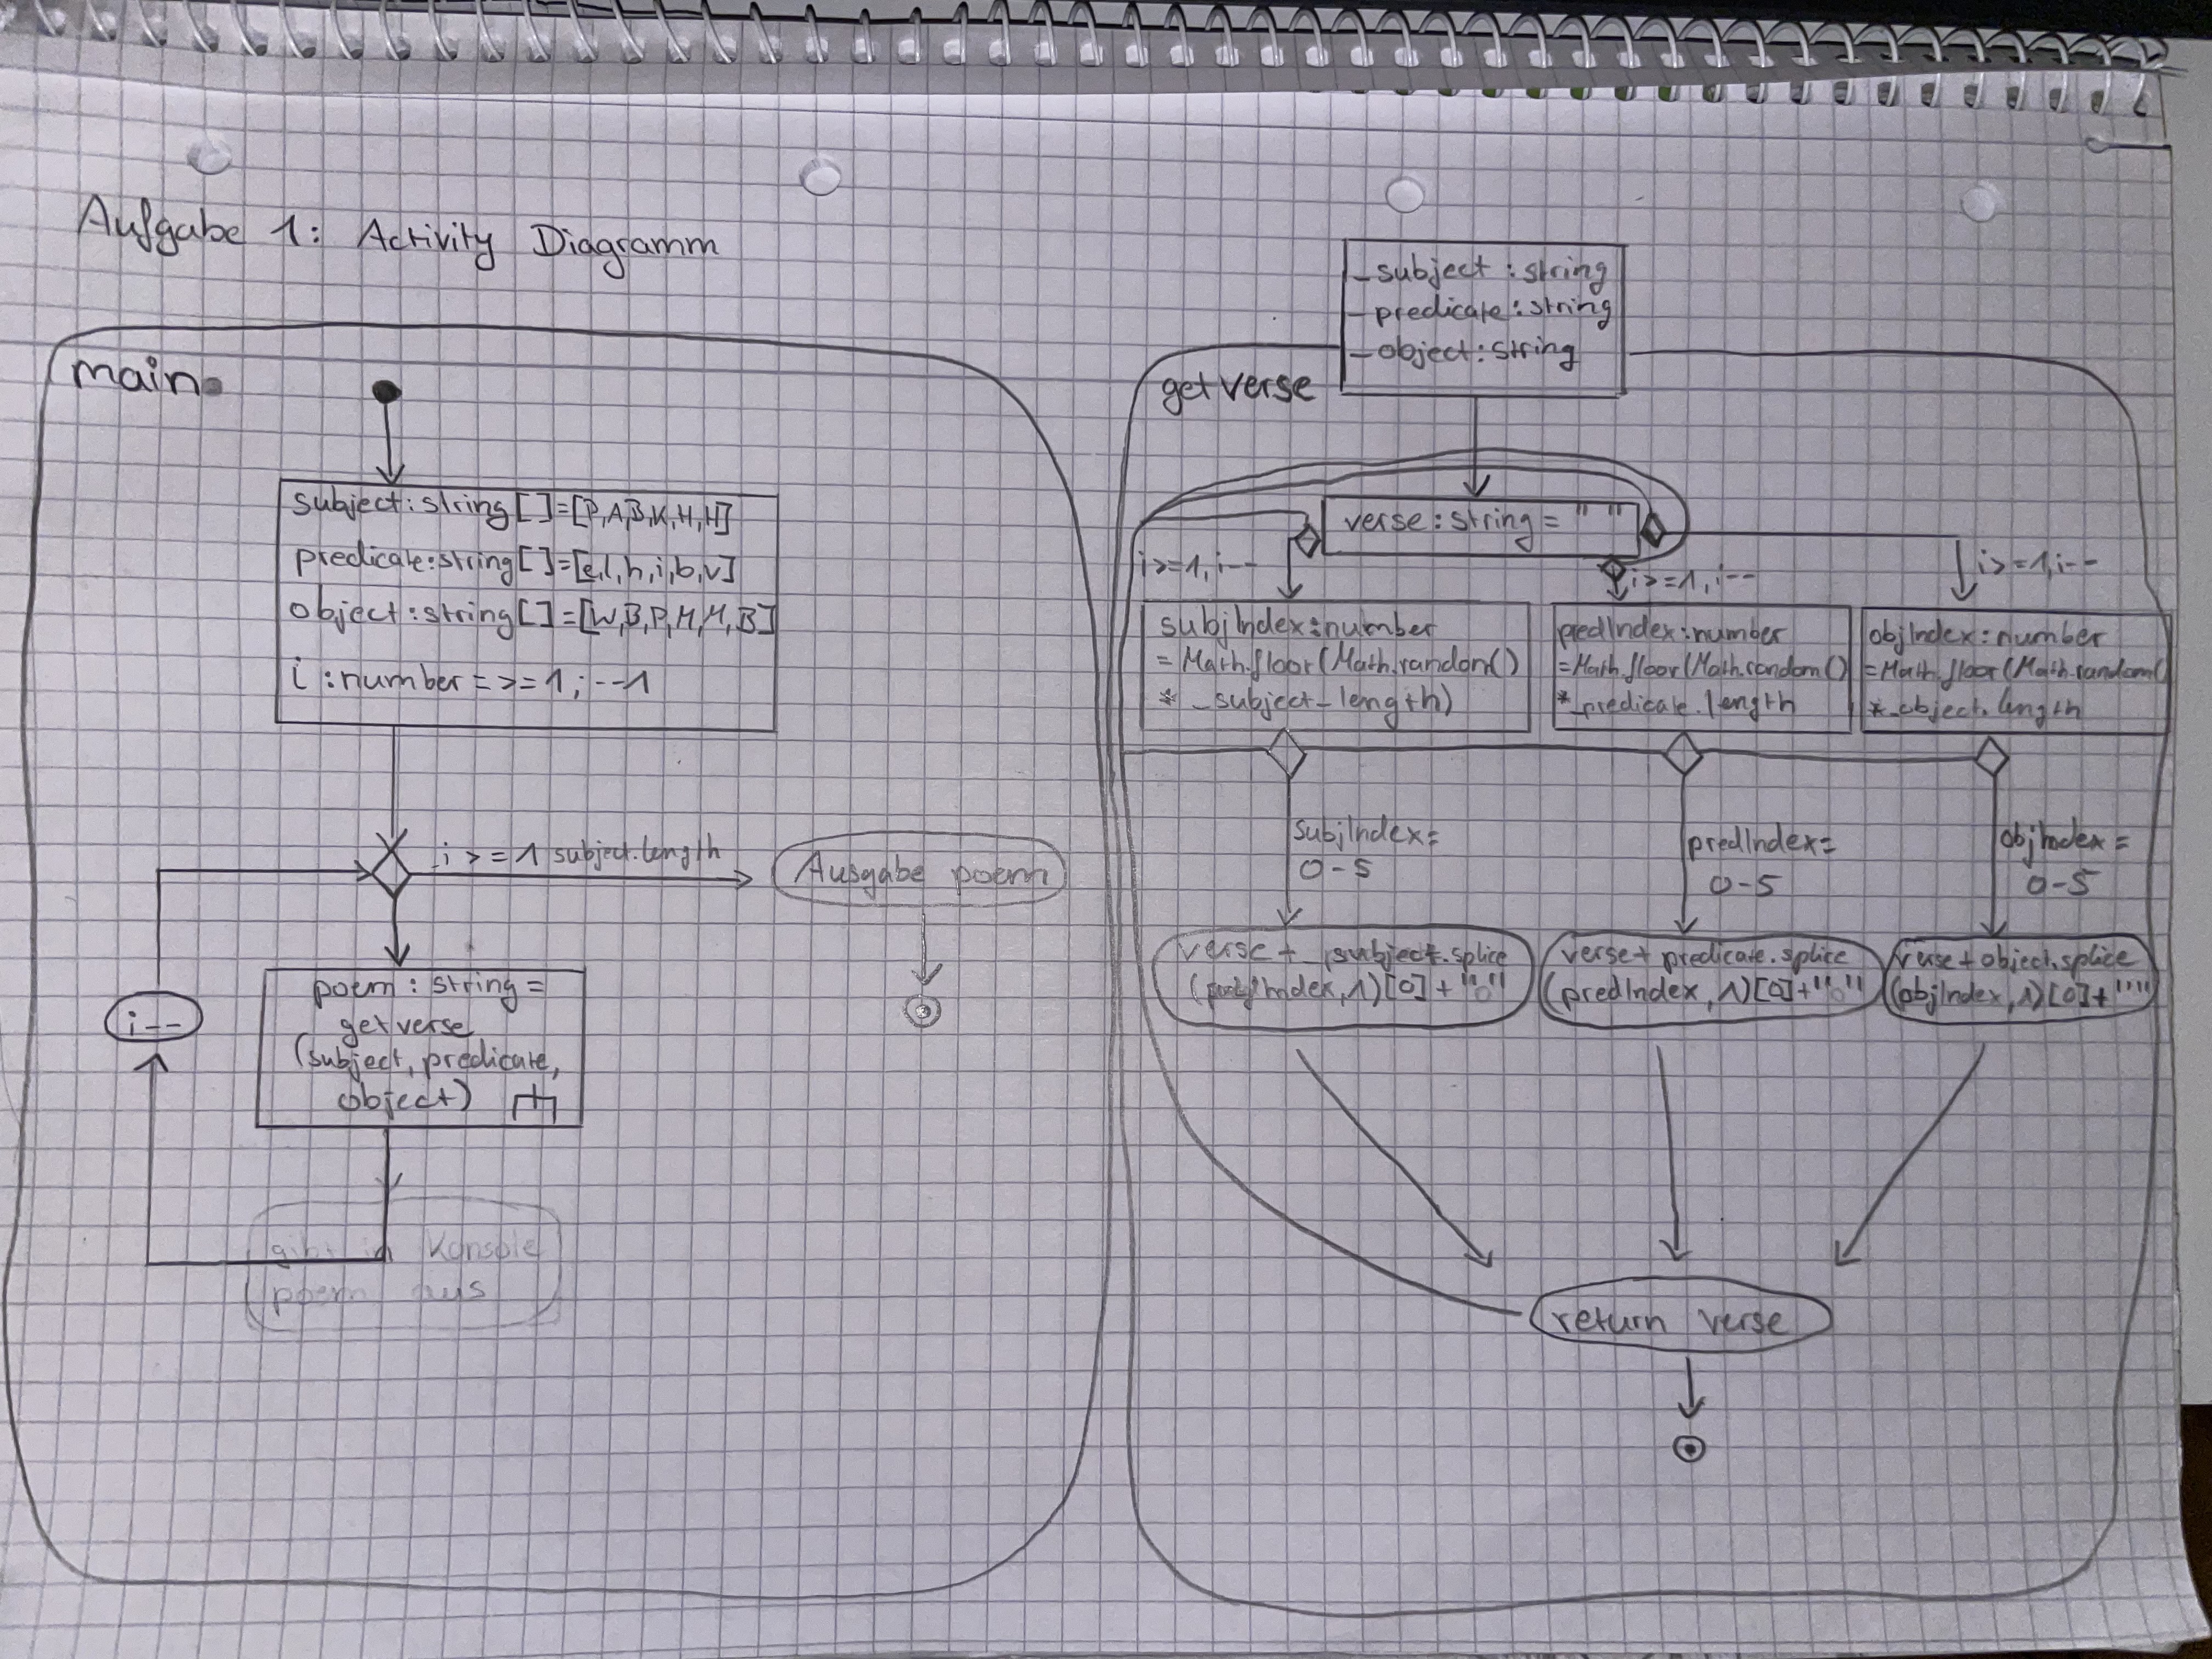 Aufgabe 1: Activity Diagramm
main
subject:string[]=[P,A,B,K,H,H]
predicate:string[]=[e,l,h,i,b,v]
object:string[]=[W,B,P,M,M,B]
i:number=>=1;--1
i>=1 subject.length
i--
poem:string=
get verse
(subject,predicate,
object)
Ausgabe poem
gibt in Konsole
poem aus
getverse
_subject:string
_predicate:string
_object:string
verse:string=""
i>=1,i--
i>=1,i--
i>=1,i--
subjIndex:number
=Math.floor(Math.random()
*_subject_length)
predIndex:number
=Math.floor(Math.random()
*_predicate.length
objIndex:number
=Math.floor(Math.random(
*_object.length
subjIndex=
0-5
predIndex=
0-5
objIndex=
0-5
verse+_subject.splice
Index,1)[0]+""
verse+predicate.splice
(predIndex,1)[0]+""
verse+object.splice
(objIndex,1)[0]+""
return verse